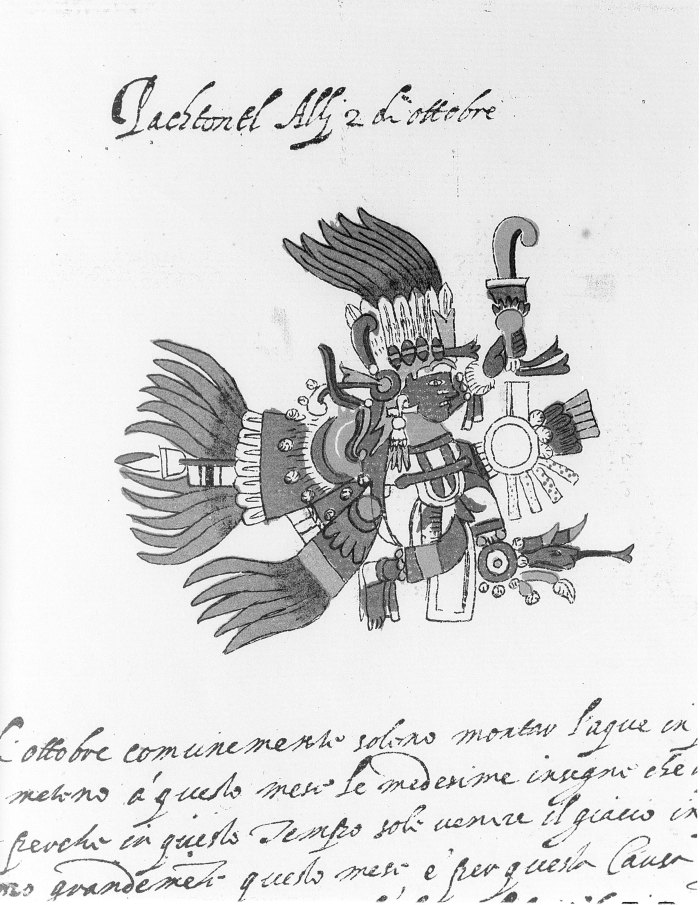 Pachtontl Alli 2 di ottobre
L ottobre comunemente soleno montar l'aque in
meteno a questo mese le medesime insegne che
perche in questo Tempo sole venire il giacio in
grandemete questo mese e per questa Causa